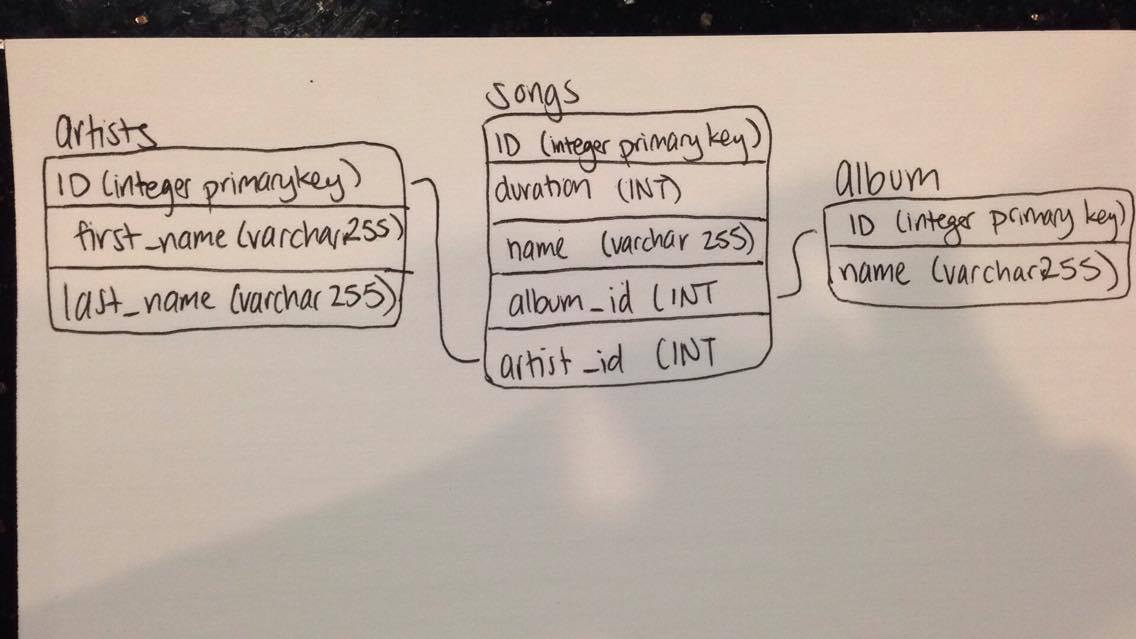 artists
ID (integer primary key)
first_name (varchar 255)
last_name (varchar 255)
songs
ID (integer primary key)
duration (INT)
name (varchar 255)
album_id (INT
artist_id (INT
album
ID (integer primary key)
name (varchar 255)